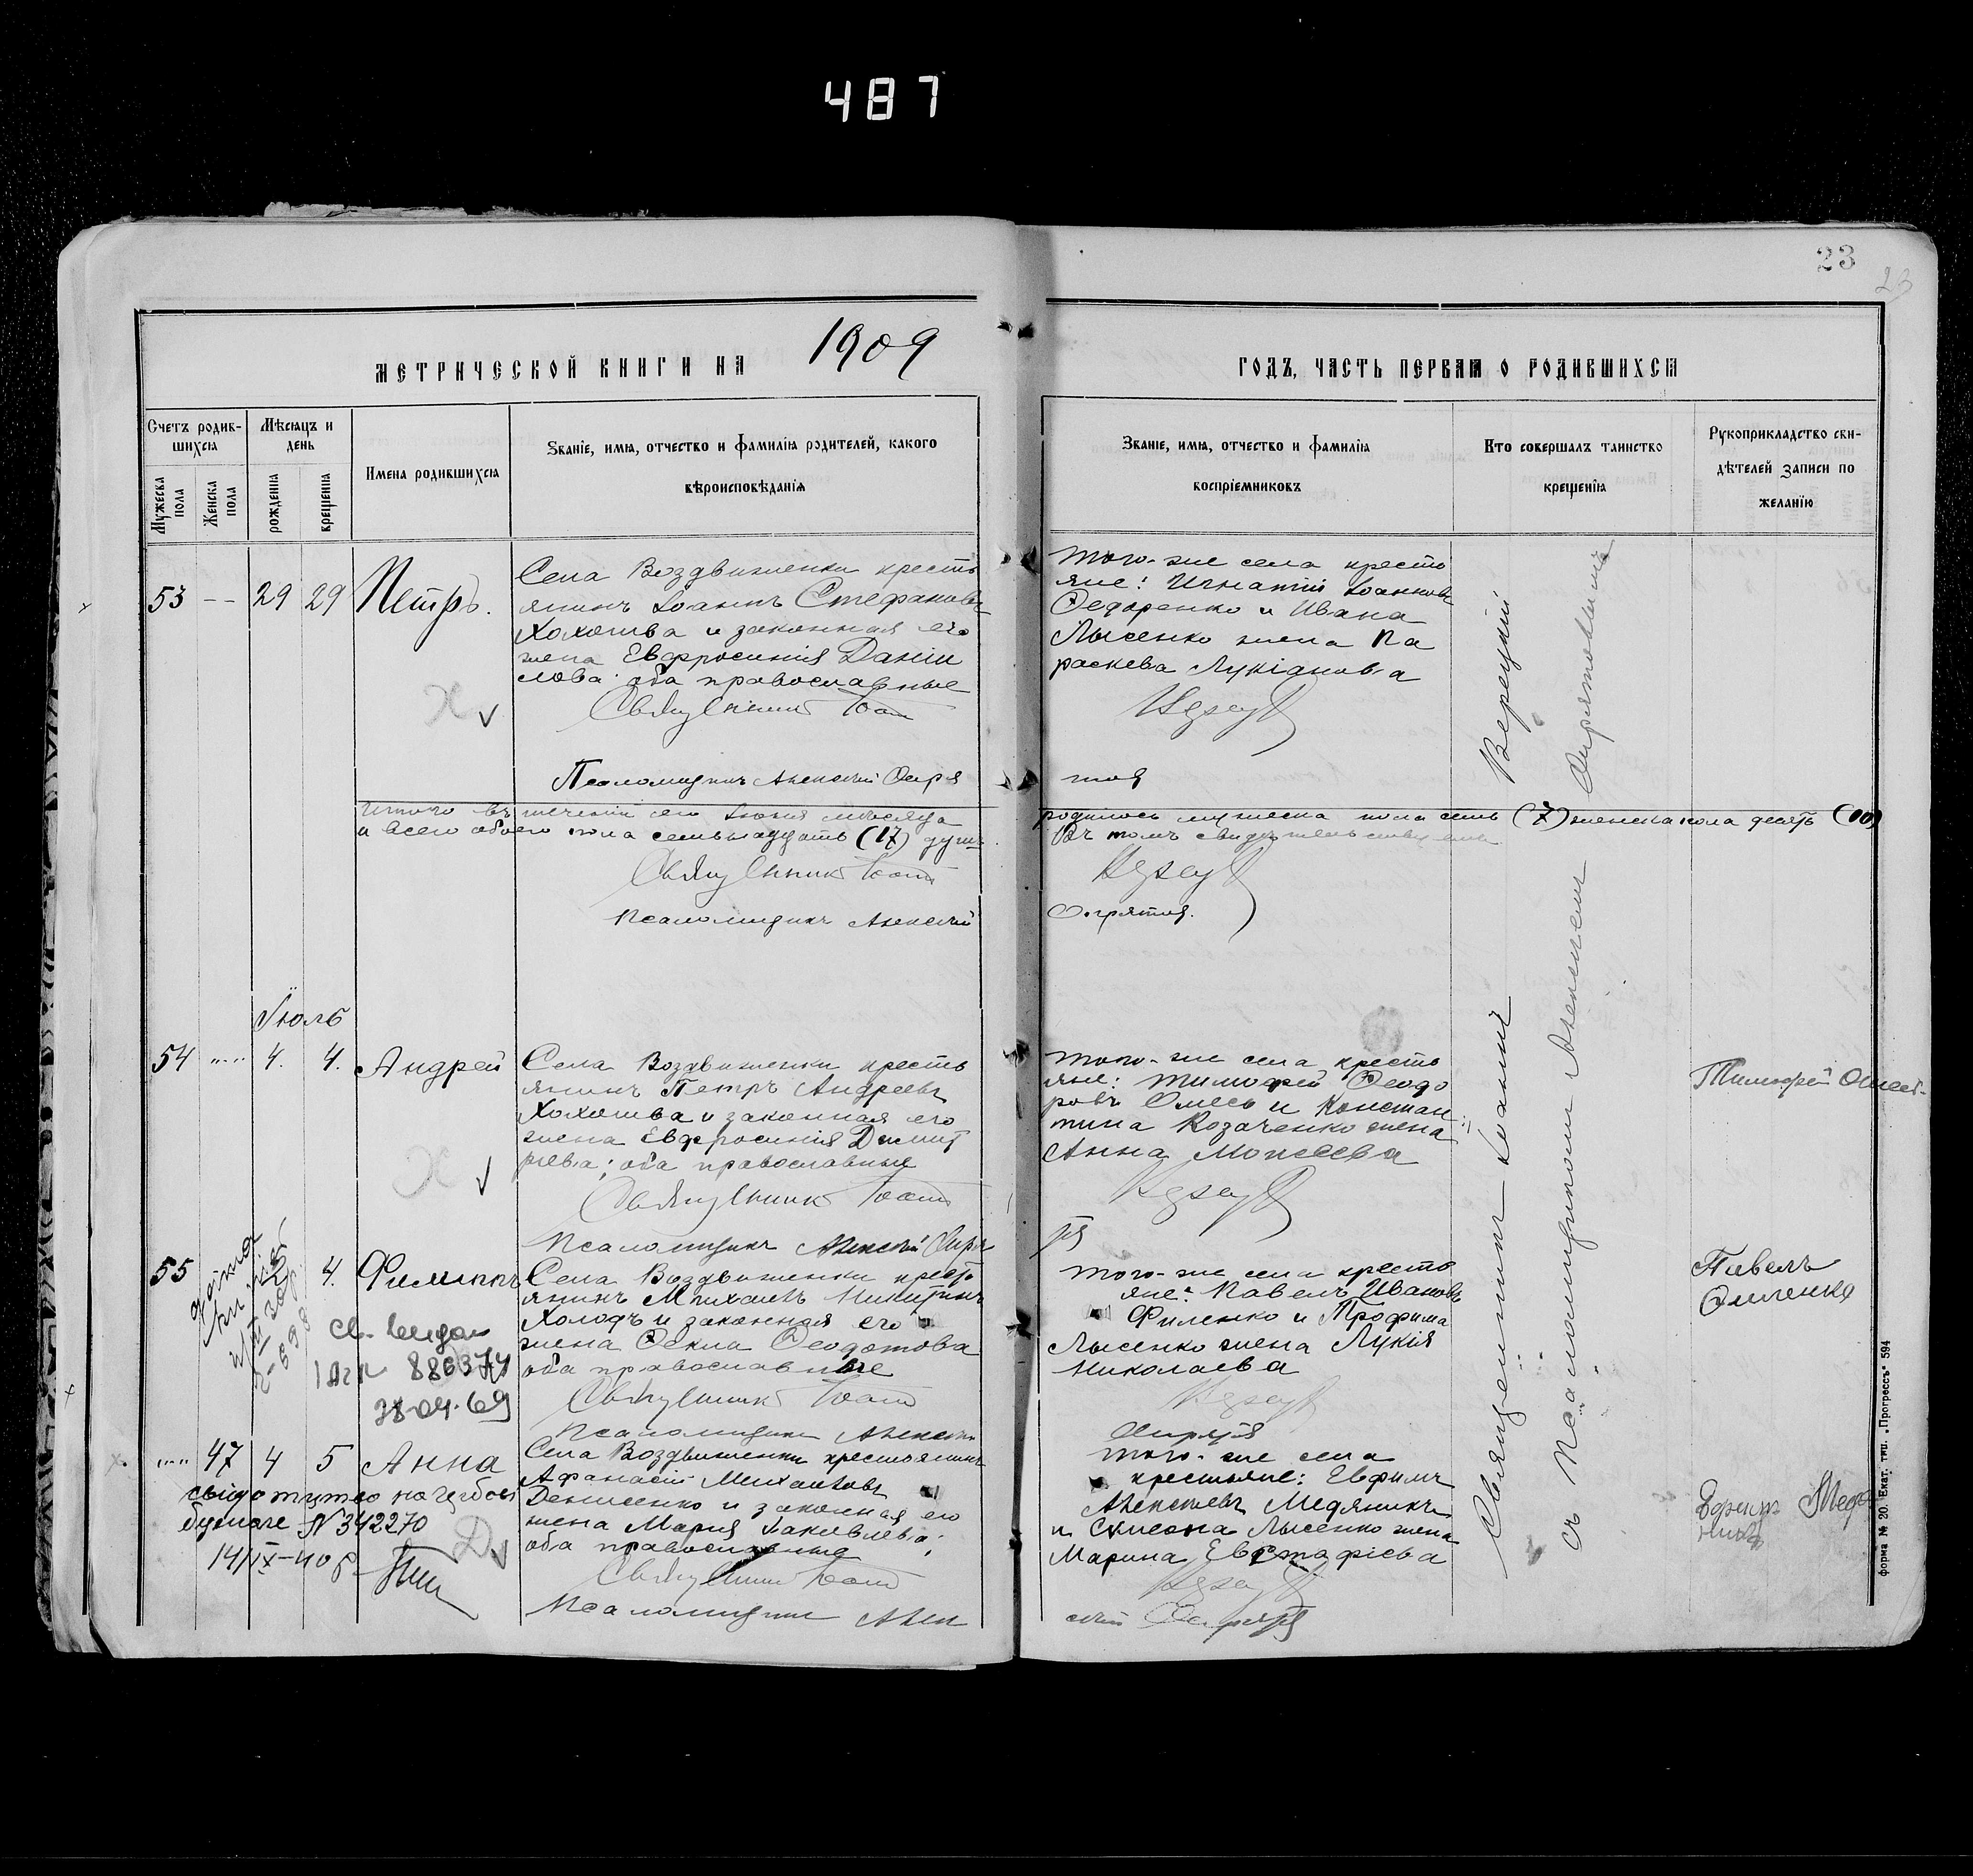 487
23
23
МЕТРИЧЕСКОЙ КНИГИ НА 1909
ГОДЪ, ЧАСТЬ ПЕРВАЯ О РОДИВШИХСЯ
Счетъ родив-
шихся
Мужеска пола
Женска пола
Мѣсяцъ и
день
рожденія
крещенія
Имена родившихся
Званіе, имя, отчество и фамилія родителей, какого
вѣроисповѣданія
Званіе, имя, отчество и фамилія
воспріемниковъ
Кто совершалъ таинство
крещенія
Рукоприкладство сви-
дѣтелей записи по
желанію
53 -- 29 29 Петръ.
Села Воздвиженки кресть
янинъ Іоаннъ Стефановъ
Хохотва и законная его
жена Евфросинія Даніи
лова оба православные
Священникъ Іоан
Псаломщикъ Алексій Опря
того-же села кресть
яне: Игнатій Іоанновъ
Федоренко и Ивана
Лысенко жена Па
раскева Лукіанова
тов
Итого въ теченіи сего Іюня мѣсяца
и всего обоего пола семьнадцать (17) душъ.
Священникъ Іоан
Псаломщикъ Алексій
родилось мужеска пола семь (7) женска пола десять (10)
Въ томъ свидѣтельствуемъ
Іюль
54 " 4. 4. Андрей
Села Воздвиженки кресть
янинъ Петръ Андреевъ
Хохотва и законная его
жена Евфросинія Димит
ріева; оба православные
Священникъ Іоан
Псаломщикъ Алексій Опря
того-же села кресть
яне: Тимофей Феодо
ровъ Олесь и Констан
тина Козаченко жена
Анна Моисеева
Тимофей Олесь
55 4. Филиппъ
Села Воздвиженки крест
янинъ Михаилъ Никитинъ
Холодъ и законная его
жена Фекла Феодотова
оба православные
Священникъ Іоан
Псаломщикъ Алексій
того-же села кресть
яне: Павелъ Ивановъ
Филенко и Трофима
Лысенко жена Лукія
Николаева
Павелъ
883374
28-04-69
" 47 4 5 Анна
Села Воздвиженки крестьянинъ
Афанасій Михаиловъ
Денисенко и законная его
жена Марія Іаковлева;
оба православные
Священникъ Іоан
Псаломщикъ Алек
того-же села
крестьяне: Евфимъ
Алексіевъ Медяникъ
и Симеона Лысенко жена
Марина Евстафіева
сій
бумаге № 342270
14/IX-40 г.
Священникъ Іоаннъ Верецкій
съ Псаломщикомъ Алексіемъ
форма № 20. Екат. тип. „Прогрессъ" 594